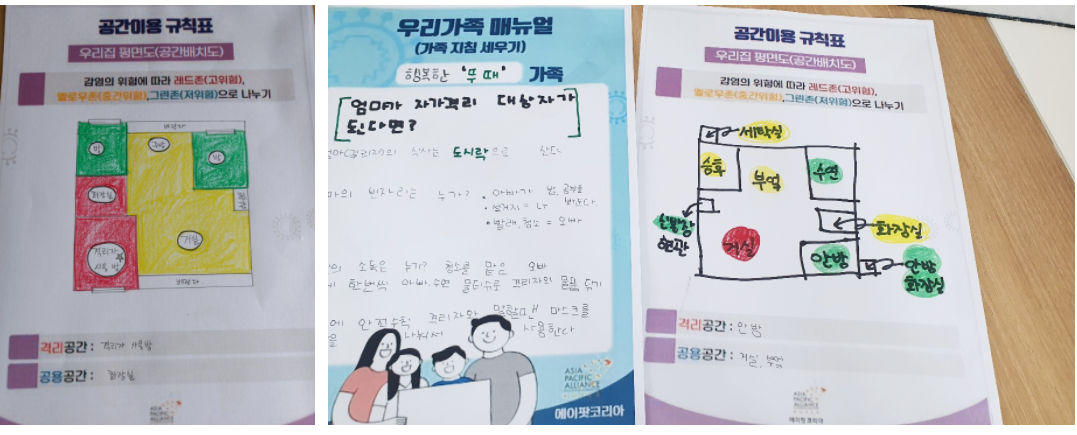 공간이용 규칙표
우리집 평면도(공간배치도)
감염의 위험에 따라 레드존(고위험),
옐로우존(중간위험),그린존(저위험)으로 나누기
베란다
방
주방
방
화장실
현관
거실
격리자
사용 방
베란다
격리공간 : 격리자 사용방
공용공간 : 화장실
ASIA
PACIFIC
ALLIANCE
우리가족 매뉴얼
(가족 지침 세우기)
행복한 "뚜 때" 가족
엄마가 자가격리 대상자가
된다면?
엄마(격리자)의 식사는 도시락으로 한다
빈자리는 누가? • 아빠가 밥,
• 설거지 = 나
• 빨래, 청소 = 오빠
소독은 누가? 청소를 맡은 오빠
한번씩 아빠.수연 물티슈로 격리자와 물품 닦기
안전수칙 격리자와 말할땐 마스크를
나눠서 사용한다
ASIA
PACIFIC
ALLIANCE
에이팟코리아
공간이용 규칙표
우리집 평면도(공간배치도)
감염의 위험에 따라 레드존(고위험),
옐로우존(중간위험),그린존(저위험)으로 나누기
세탁실
승후
부엌
수연
신발장
현관
화장실
거실
안방
안방
화장실
격리공간 : 안방
공용공간 : 거실, 부엌
ASIA
PACIFIC
ALLIANCE
에이팟코리아